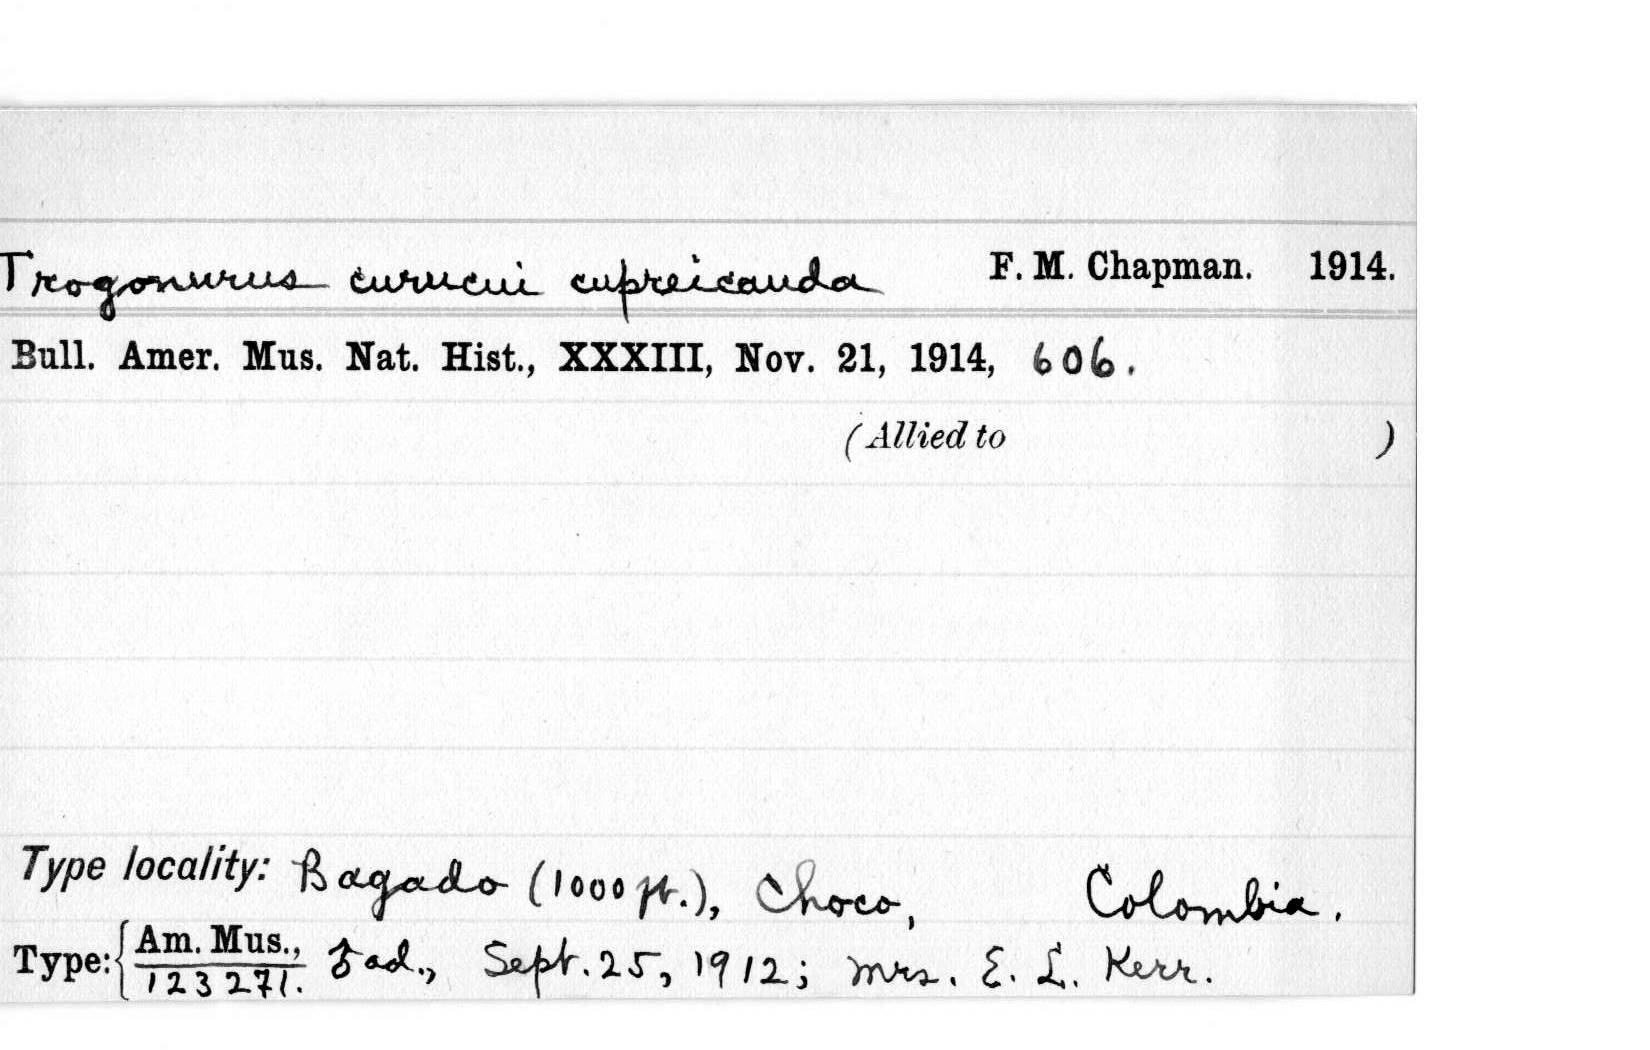 Trogonurus curucui cupreicauda F. M. Chapman. 1914.
Bull. Amer. Mus. Nat. Hist., XXXIII, Nov. 21, 1914, 606.
(Allied to )
Type locality: Bagado (1000 ft.), Choco, Colombia.
Type: { Am. Mus., 123271. ♂ ad., Sept. 25, 1912; Mrs. E. L. Kerr.